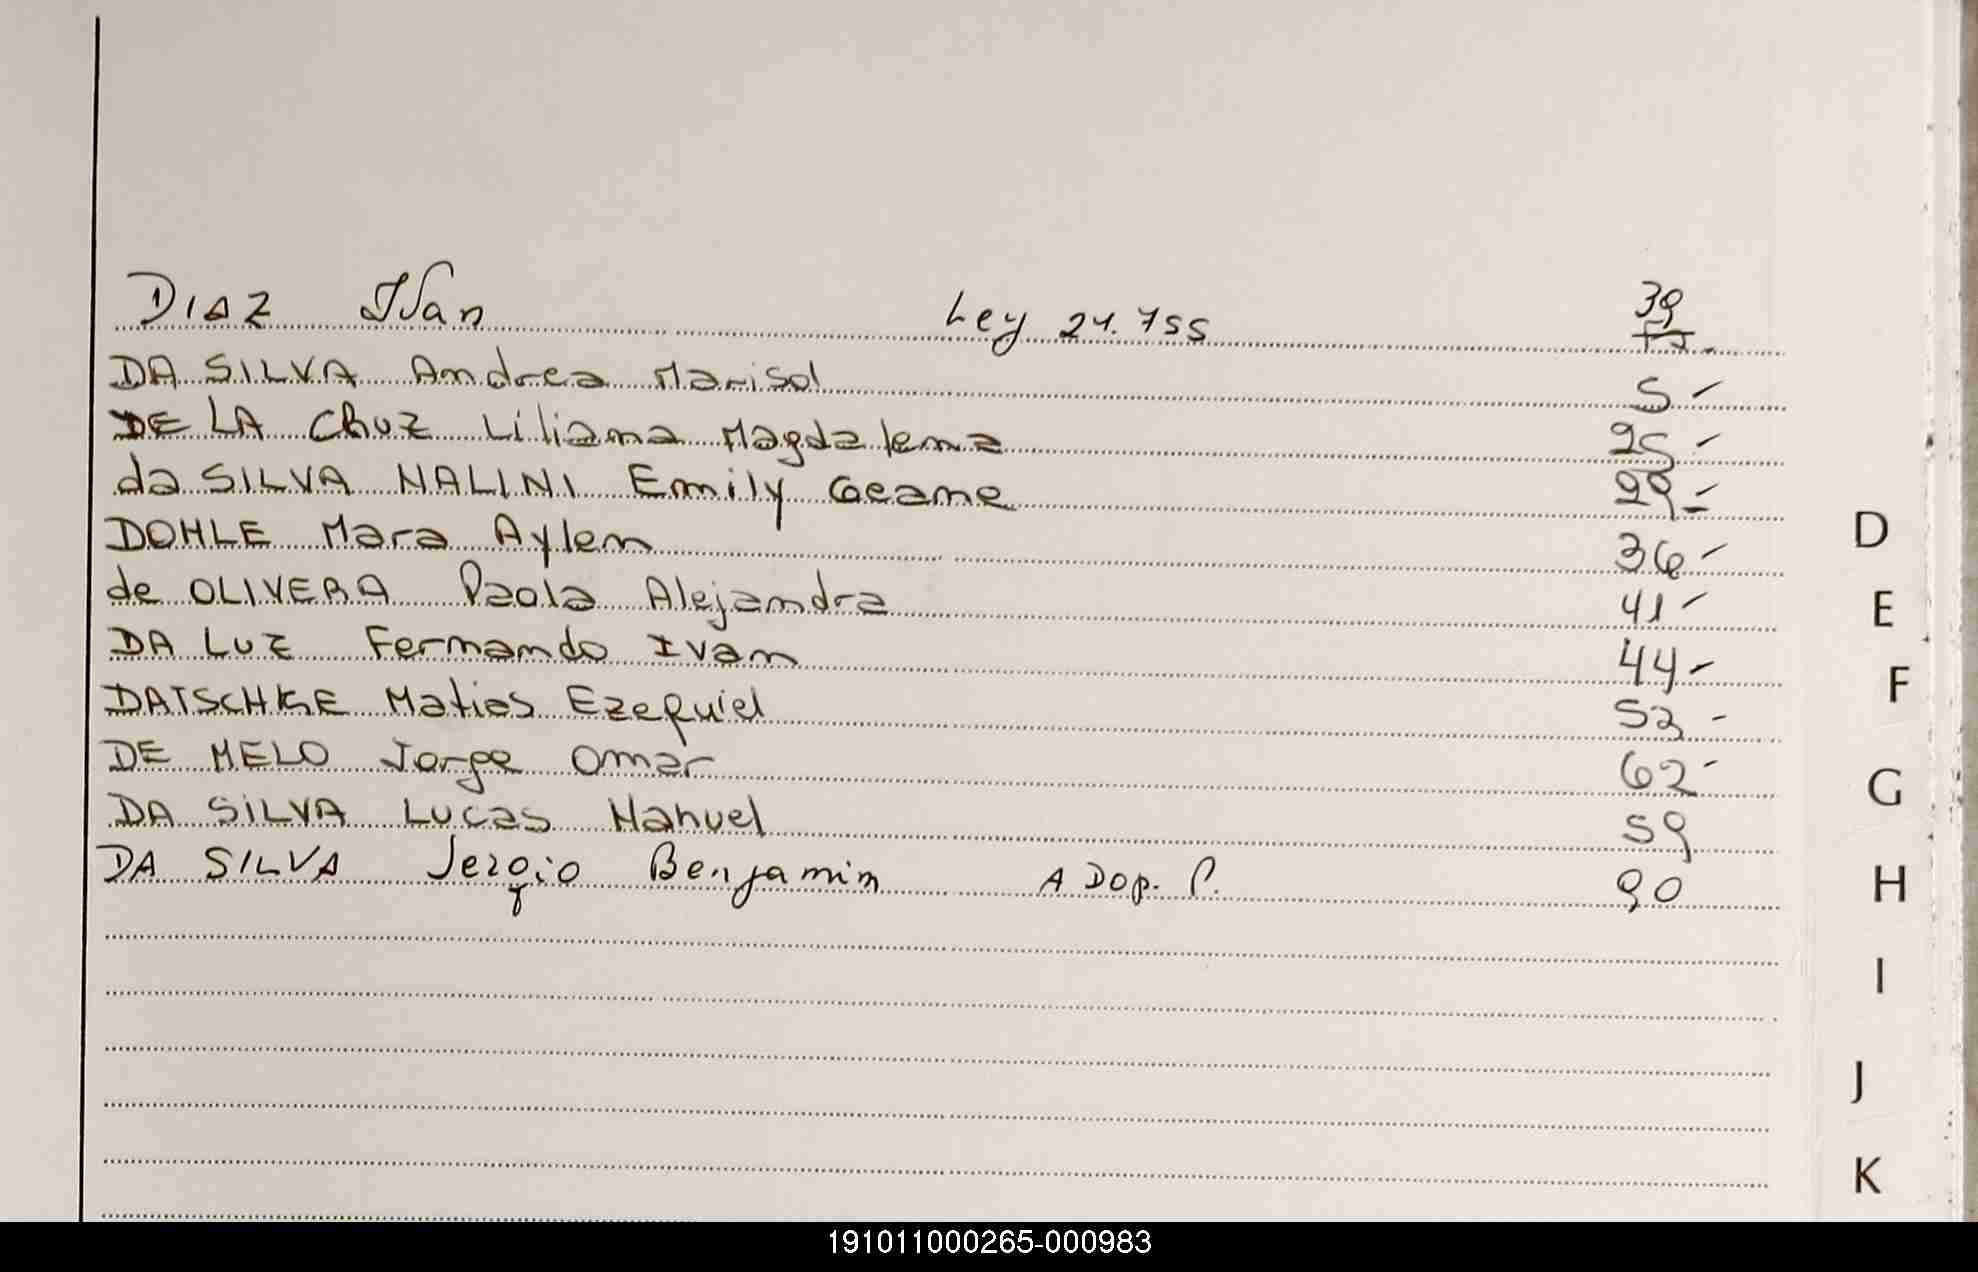 DIAZ Ivan Ley 24.755 39
FJ.
DA SILVA Andrea Marisol 5 -
DE LA CRUZ Liliana Magdalena 25 -
da SILVA NALINI Emily Geane 29 -
DOHLE Mara Aylen 36 -
de OLIVERA Paola Alejandra 41 -
DA LUZ Fernando Ivan 44 -
DATSCHKE Matias Ezequiel 53 -
DE MELO Jorge Omar 62 -
DA SILVA Lucas Manuel 59
DA SILVA Sergio Benjamin ADop. P. 90
D
E
F
G
H
I
J
K
191011000265-000983